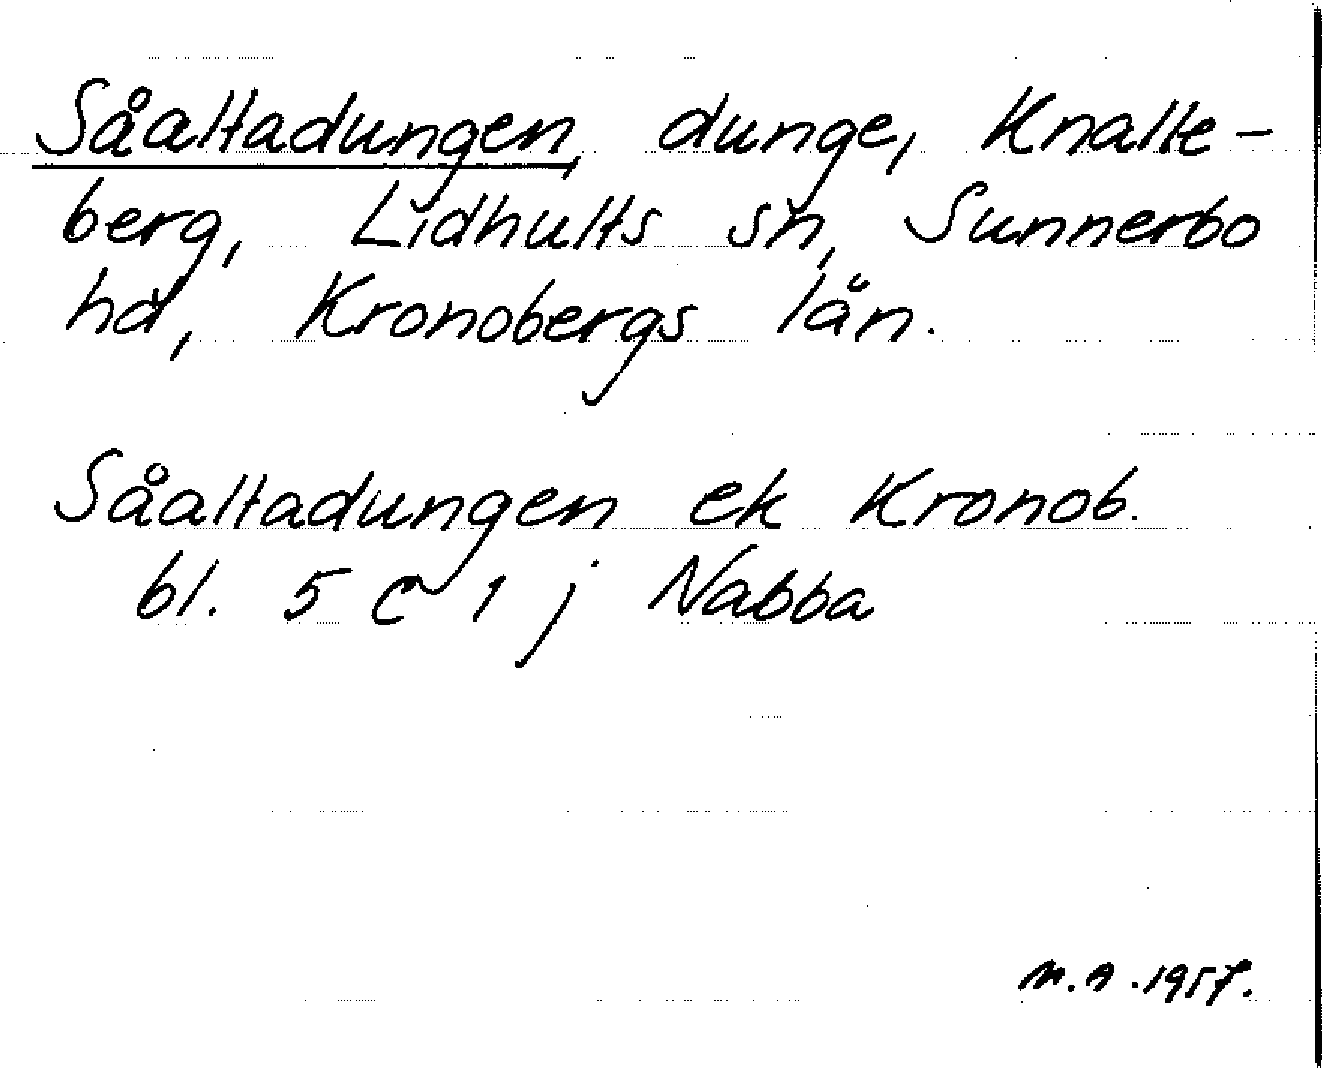 Såaltadungen, dunge, Knalle-
berg, Lidhults sn, Sunnerbo
hd, Kronobergs län.
Såaltadungen ek Kronob.
bl. 5 C 1 j Nabba
M.A. 1957.